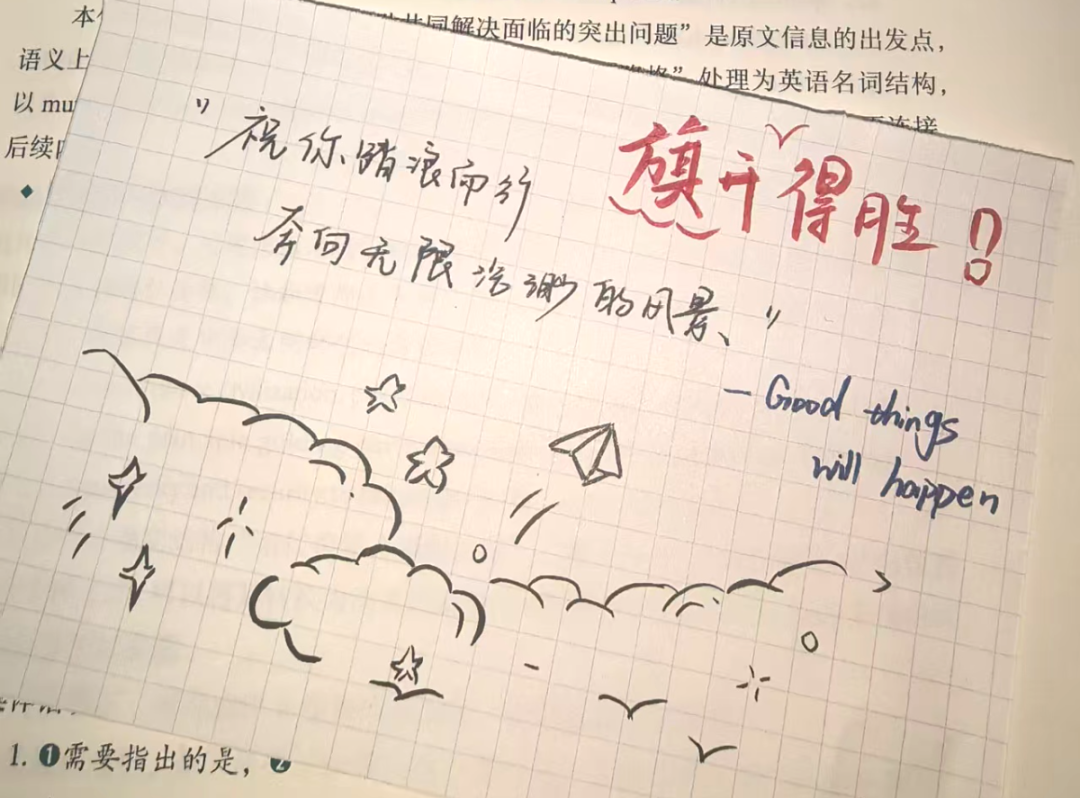 本
共同解决面临的突出问题”是原文信息的出发点，
语义上
处理为英语名词结构，
以 mu
连接
后续
"祝你踏浪而行
旗开得胜！
奔向无限浩渺的风景、"
— Good things
will happen
1. ❶需要指出的是，❷